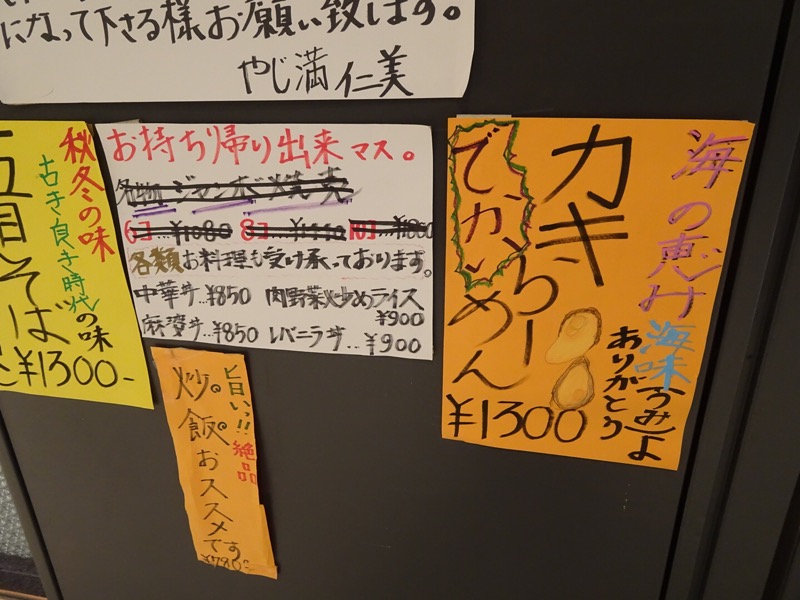 になって下さる様お願い致します。
やじ満 仁美
秋冬の味
古き良き時代の味
五目そば
¥1300-
お持ち帰り出来マス。
名物 ジャンボ焼売
6コ…¥1080 8コ…¥1440 10コ…¥1800
各類お料理も受け承っております。
中華丼…¥850 肉野菜炒めライス
¥900
麻婆丼…¥850 レバニラ丼…¥900
旨いっ!! 絶品
炒飯。おススメです
¥780-
海の恵み
海味(うみ)よ
ありがとう
でかい
カキらーめん
¥1300